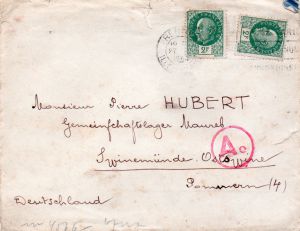 2F
2F
Monsieur Pierre HUBERT
Gemeinschaftslager Maureb
Swinemünde, Ostswine
Pommern (4)
Ac
Deutschland